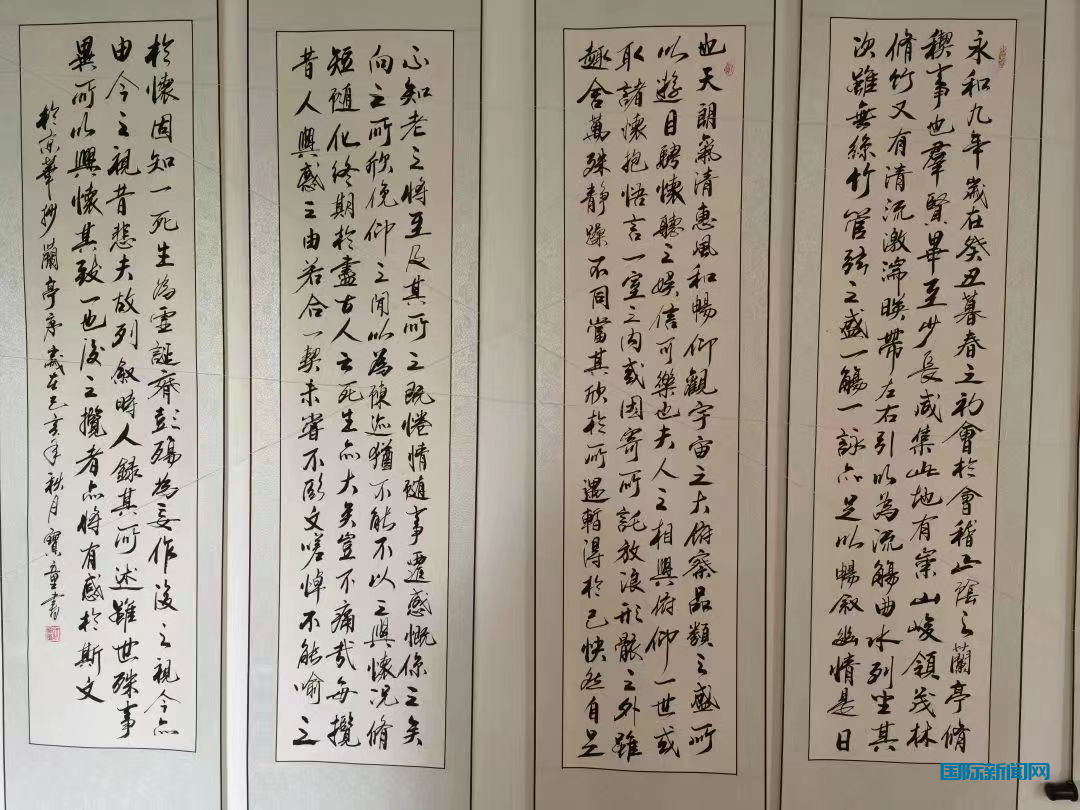 永和九年歲在癸丑暮春之初會於會稽山陰之蘭亭脩
稧事也羣賢畢至少長咸集此地有崇山峻領茂林
脩竹又有清流激湍暎帶左右引以為流觴曲水列坐其
次雖無絲竹管弦之盛一觴一詠亦足以暢敘幽情是日
也天朗氣清惠風和暢仰觀宇宙之大俯察品類之盛所
以遊目騁懷聽之娛信可樂也夫人之相與俯仰一世或
取諸懷抱悟言一室之內或因寄所託放浪形骸之外雖
趣舍萬殊靜躁不同當其欣於所遇暫得於己快然自足
不知老之將至及其所之既惓情隨事遷感慨係之矣
向之所欣俛仰之閒以為陳迹猶不能不以之興懷況脩
短隨化終期於盡古人云死生亦大矣豈不痛哉每攬
昔人興感之由若合一契未嘗不臨文嗟悼不能喻之
於懷固知一死生為虛誕齊彭殤為妄作後之視今亦
由今之視昔悲夫故列敘時人錄其所述雖世殊事
異所以興懷其致一也後之攬者亦將有感於斯文
於京華抄蘭亭序歲在己亥年秋月寶童書
国际新闻网